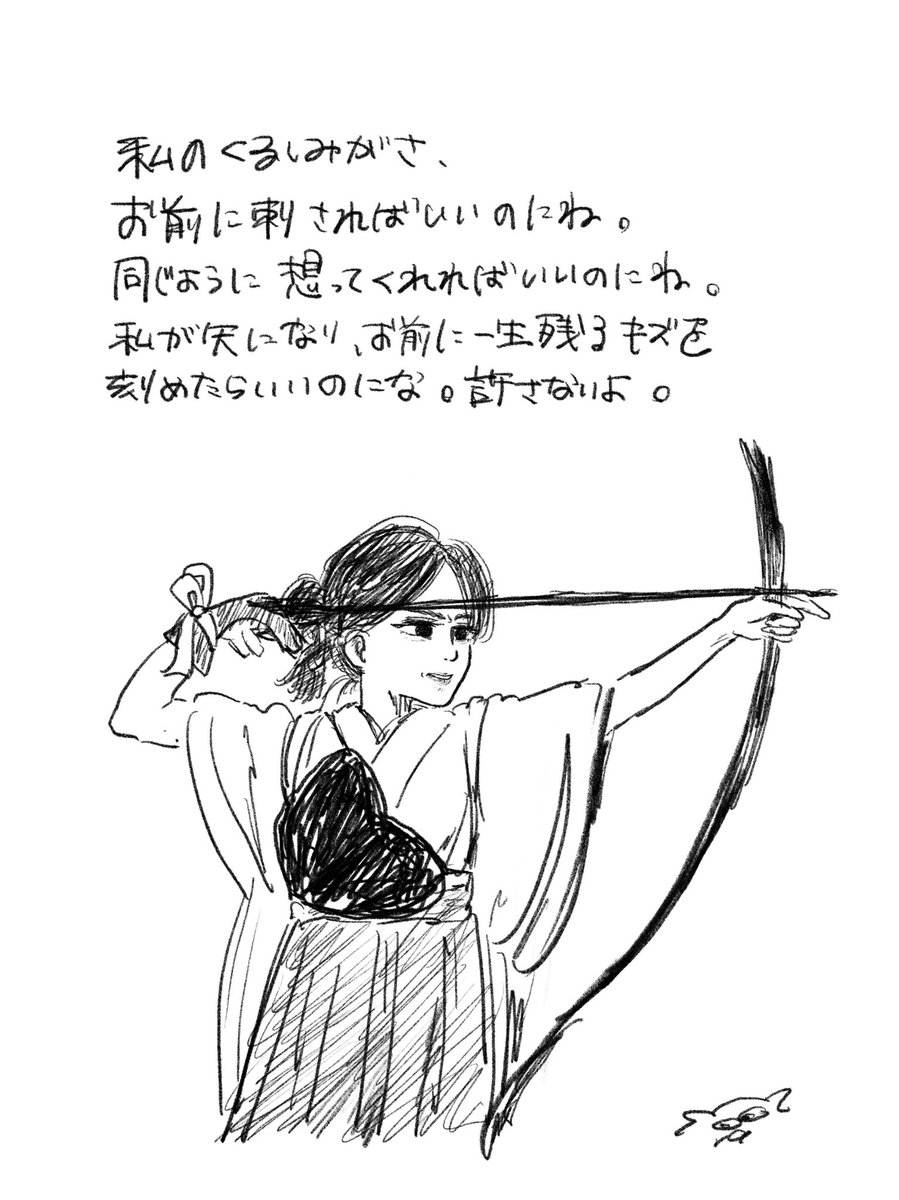 私のくるしみがさ、
お前に刺さればいいのにね。
同じように想ってくれればいいのにね。
私が矢になり、お前に一生残るキズを
刻めたらいいのにな。許さないよ。